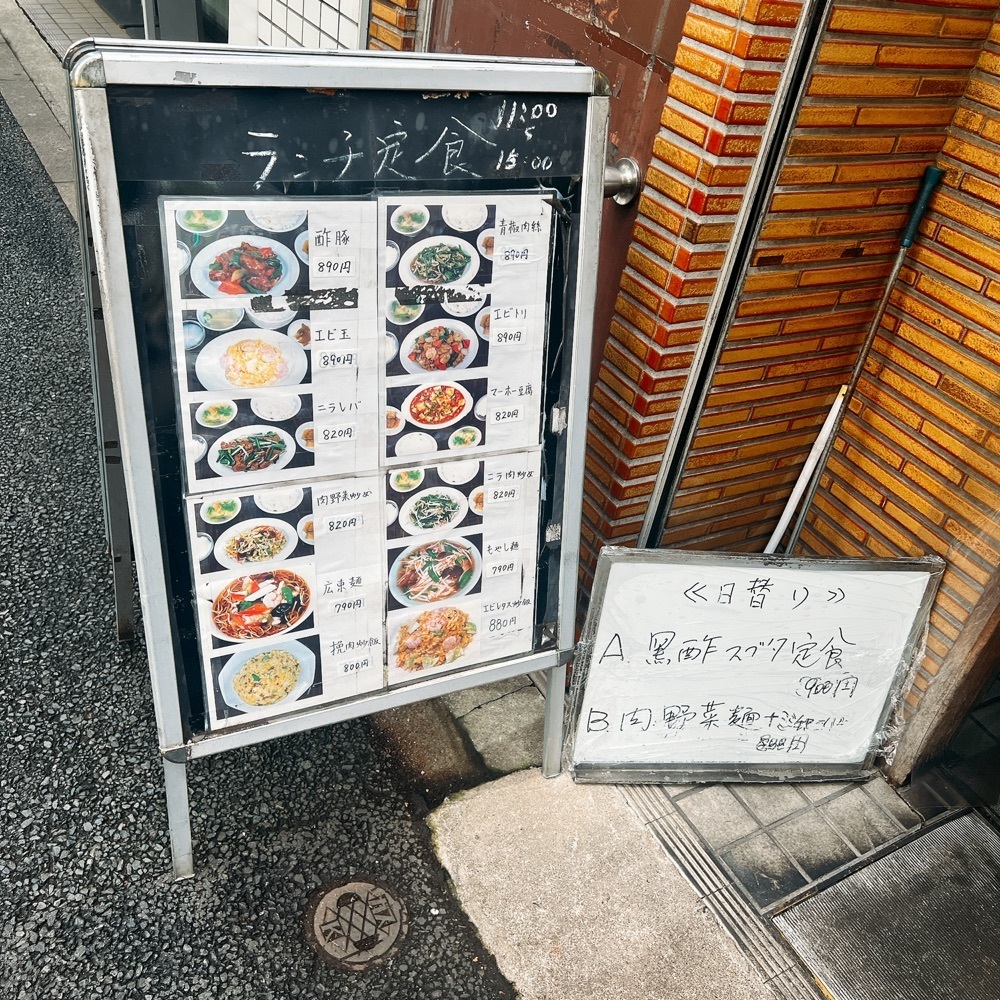 ランチ定食
11:00
〜
15:00
酢豚
890円
エビ玉
890円
ニラレバ
820円
肉野菜炒め
820円
広東麺
790円
挽肉炒飯
800円
青椒肉絲
890円
エビトリ
890円
マーボー豆腐
820円
ニラ肉炒め
820円
もやし麺
790円
エビレタス炒飯
880円
≪日替り≫
A 黒酢スブタ定食
900円
B 肉野菜麺+